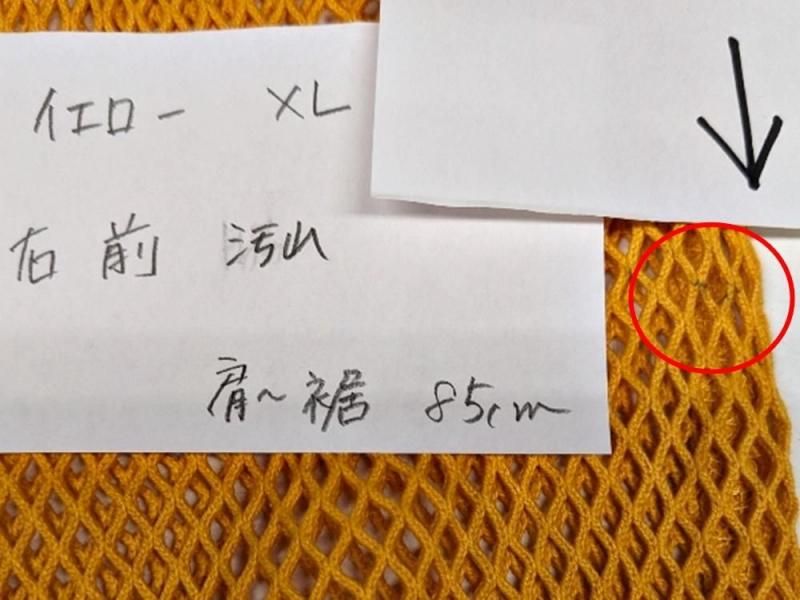 イエロー XL
右前 汚れ
肩〜裾 85cm